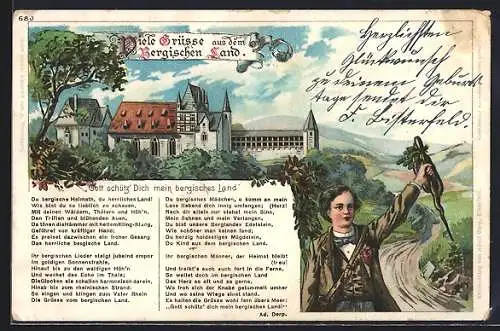 680
Viele Grüsse aus dem
Bergischen Land.
Herzlichsten
Glückwunsch
zu deinem Geburts
tage sendet dir
"Gott schütz' Dich mein bergisches Land"
Du bergische Heimath, du herrliches Land!
Wie bist du so lieblich zu schauen,
Mit deinen Wäldern, Thälern und Höh'n,
Den Triften und blühenden Auen,
Da tönen die Hämmer mit
Geführet von kräftiger Hand;
Es preiset dazwischen ein froher Gesang
Das herrliche bergische Land.
Ihr bergischen Lieder steigt jubelnd empor
Im goldigen Sonnenstrahle,
Hinauf bis zu den waldigen Höh'n
Und wecket das Echo im Thale;
Die Glocken sie schallen harmonisch darein,
Hinab bis zum rheinischen Strand.
So singen und klingen zum Vater Rhein
Die Grüsse vom bergischen Land.
Du bergisches Mädchen, o komm an mein
Lass liebend dich innig umfangen; (Herz!
Nach dir allein nur stehet mein Sinn,
Mein Sehnen und mein Verlangen,
Du bist unsere Berglandes Edelstein,
Wie schöner man keinen fand;
Du herzig holdseliges Mägdelein,
Du Kind aus dem bergischen Land.
Ihr bergischen Männer, der Heimat bleibt
(treu
Und treibt's euch auch fort in die Ferne,
So weilet doch im bergischen Land
Das Herz so oft und so gerne,
Wo froh sich der Knabe getummelt umher
Und wo seine Wiege einst stand.
Es hallen die Grüsse wohl fern übers Meer:
"Gott schütz' dich mein bergisches Land!"
Ad. Derp.